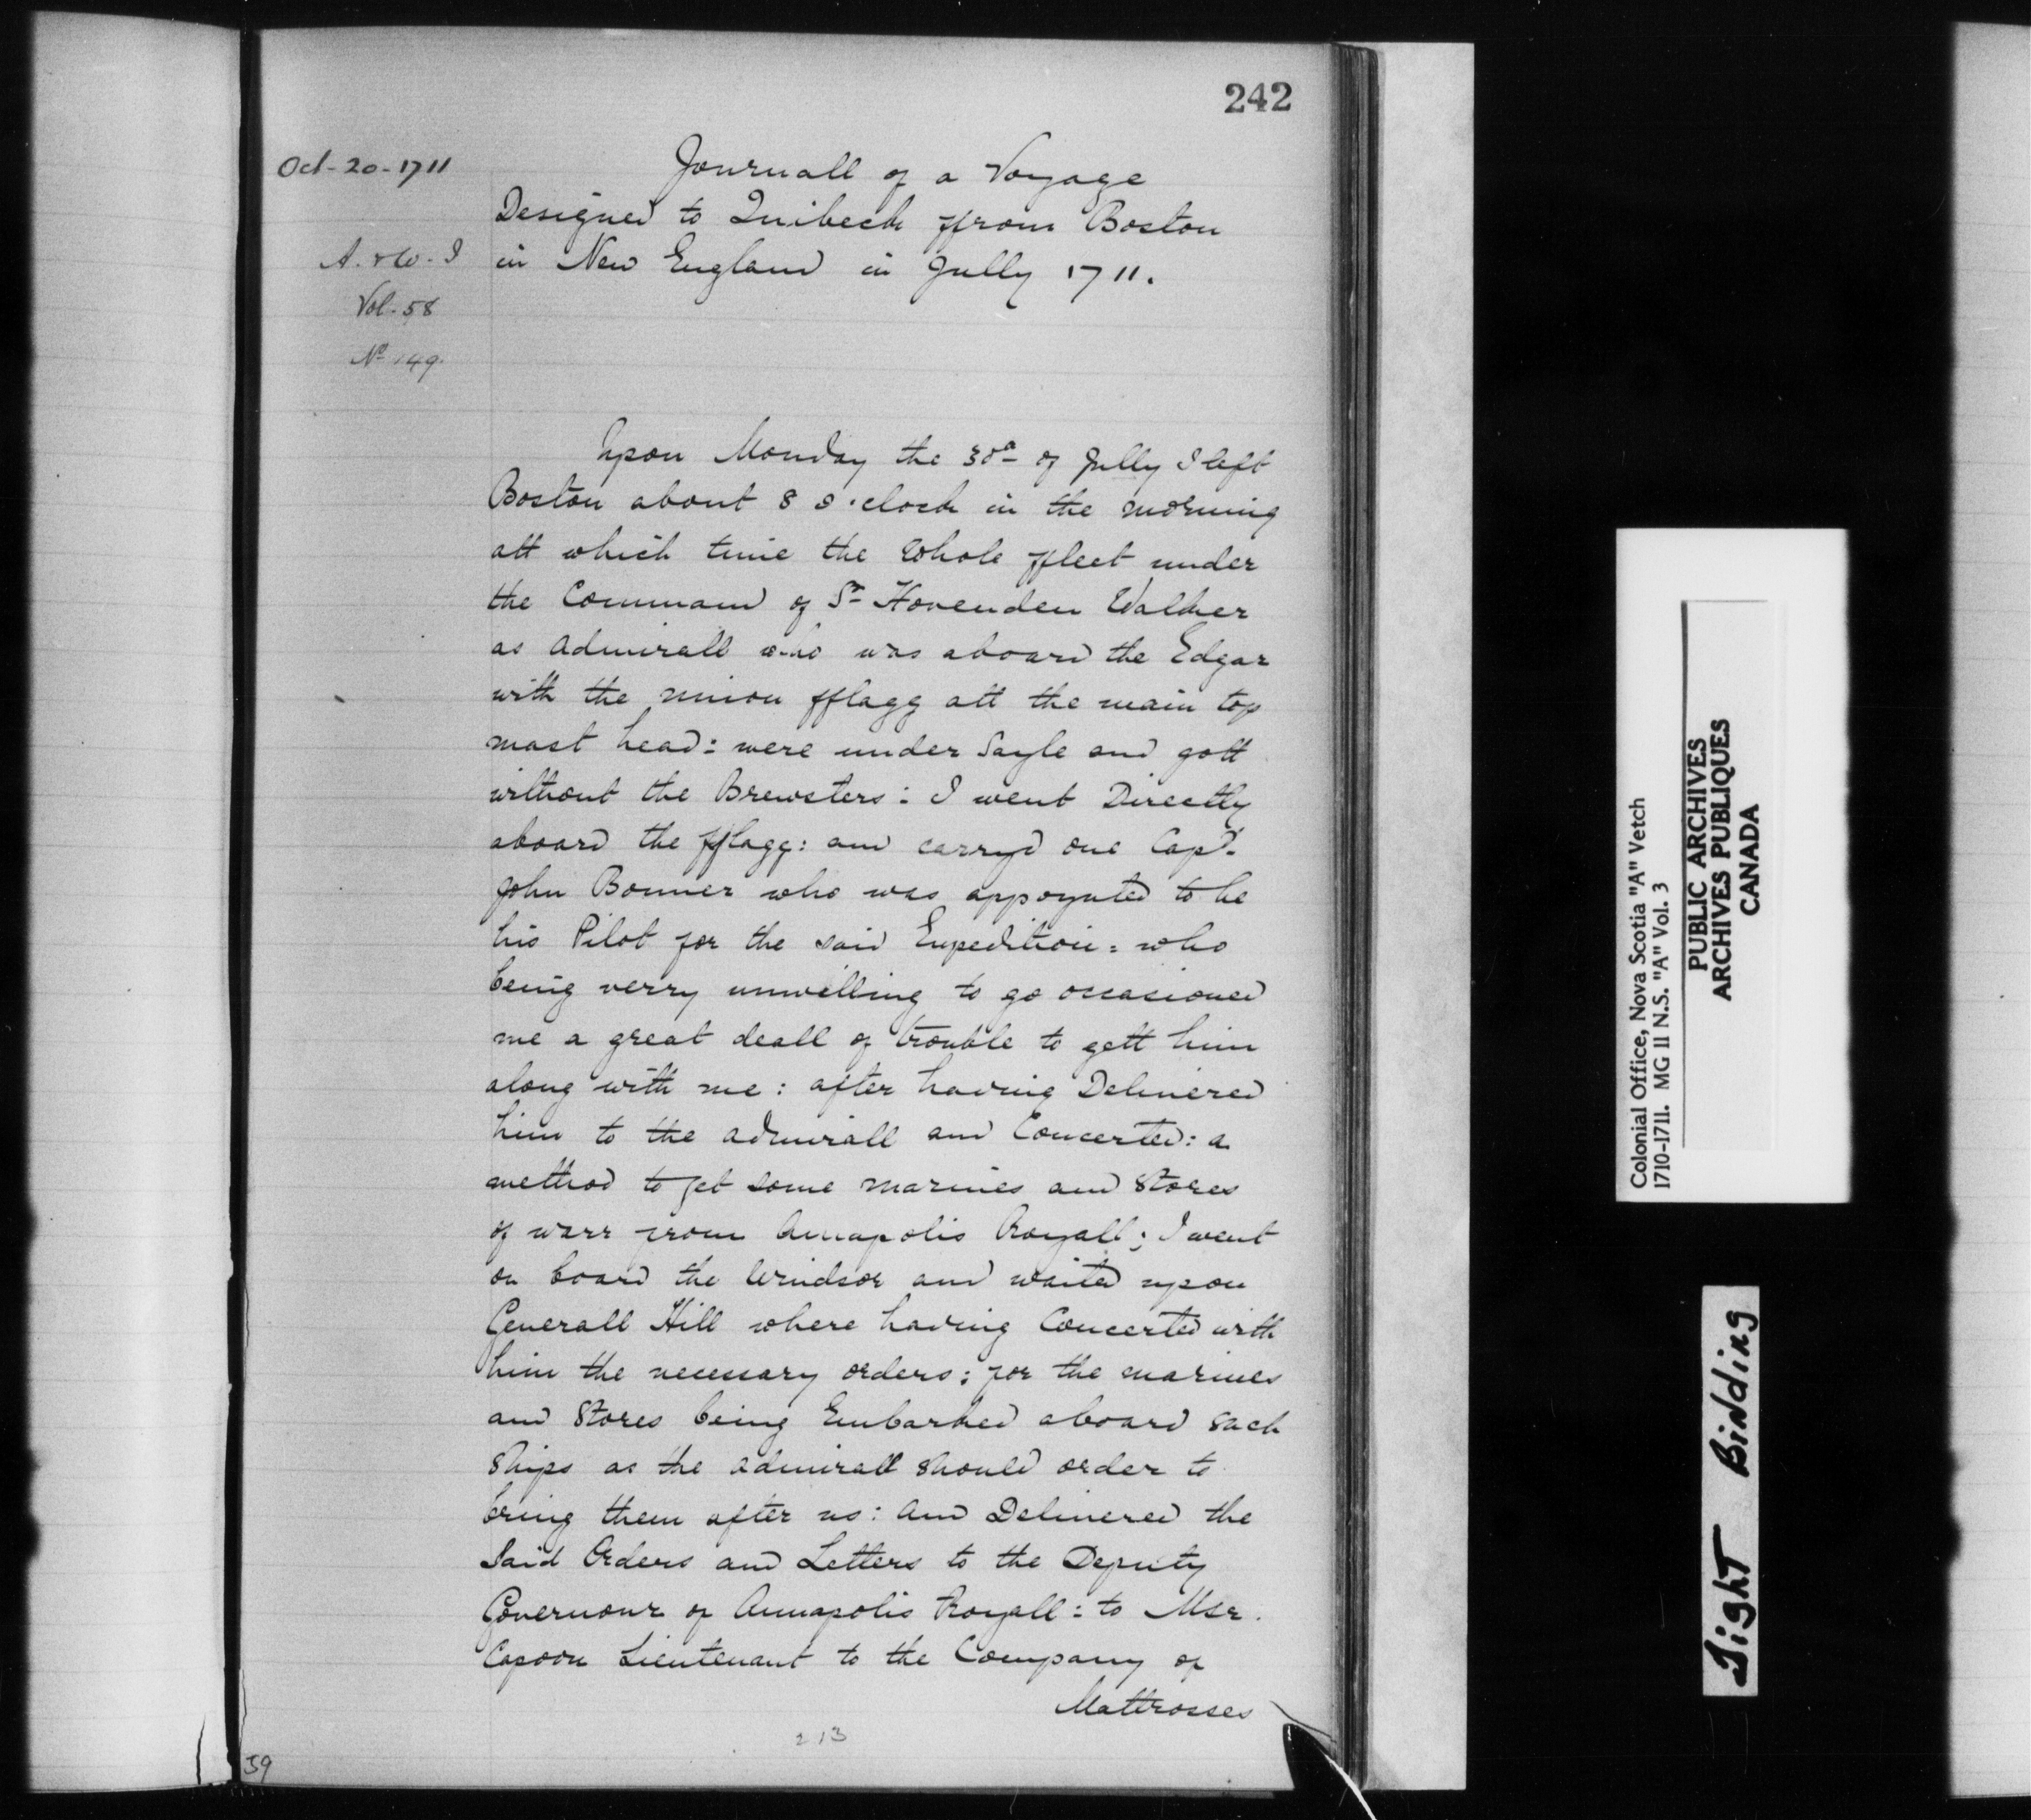 242
Oct-20-1711
A. & W. I
Vol. 58
No 149.
Journall of a Voyage
Designed to Quibeck ffrom Boston
in New England in Jully 1711.
Upon Monday the 30th of Jully I left
Boston about 8 o'clock in the morning
att which time the Whole ffleet under
the Command of Sr Hovenden Walker
as Admirall who was aboard the Edgar
with the union fflagg att the main top
mast head: were under Sayle and gott
without the Brewsters: I went Directly
aboard the fflagg: and carryd one Capt.
John Bonner who was appoynted to be
his Pilot for the said Expedition: who
being verry unwilling to go occasioned
me a great deall of trouble to gett him
along with me: after having Delivered
him to the admirall and Concerted: a
method to get some marines and Stores
of warr from Annapolis Royall; I went
on board the Windsor and waited upon
Generall Hill where having Concerted with
him the necessary orders; for the marines
and Stores being Embarked aboard such
Ships as the admirall should order to
bring them after us: and Delivered the
Said Orders and Letters to the Deputy
Governour of Annapolis Royall: to Msr.
Capoon Lieutenant to the Company of
Mattrosses
213
59
Colonial Office, Nova Scotia "A" Vetch
1710-1711. MG 11 N.S. "A" Vol. 3
PUBLIC ARCHIVES
ARCHIVES PUBLIQUES
CANADA
Tight Binding